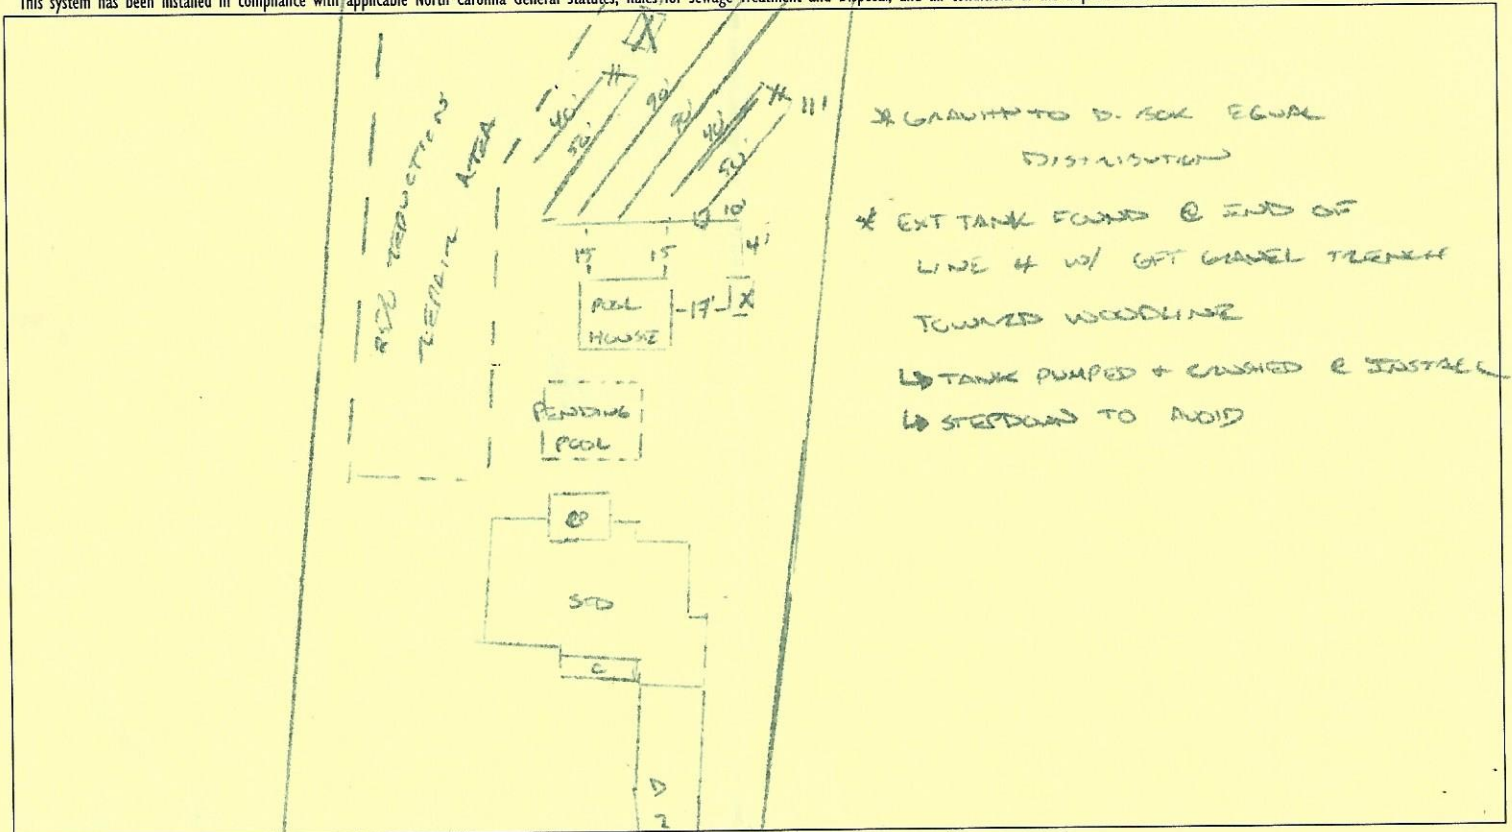 This system has been installed in compliance with applicable North Carolina General Statutes, Rules for Sewage Treatment and Disposal, and all conditions
40'
50'
90'
90'
40'
50'
11'
25% REDUCTION
REPAIR AREA
10'
15
15
4'
POOL
HOUSE
17'
X
PENDING
POOL
CP
SFD
C
D
* GRAVITY TO D. BOX EQUAL
DISTRIBUTION
* EXT TANK FOUND @ END OF
LINE 4 W/ 6FT GRAVEL TRENCH
TOWARD WOODLINE
↳ TANK PUMPED + CRUSHED @ INSTALL
↳ STEPDOWN TO AVOID